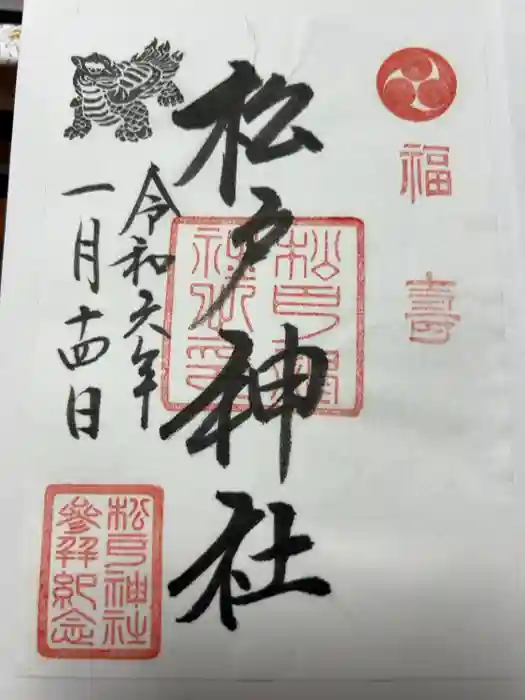 福
壽
松戸神社
松戸神
社之印
令和六年
一月十四日
松戸神社
參拜紀念